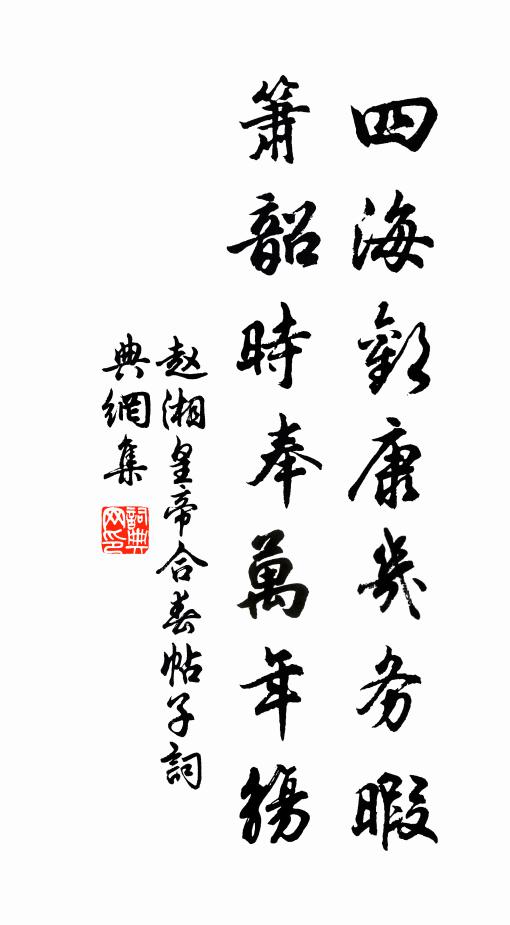 四海歡康幾务暇
簫韶時奉萬年觴
赵湘皇帝合春帖子詞
典網集
詞典网印